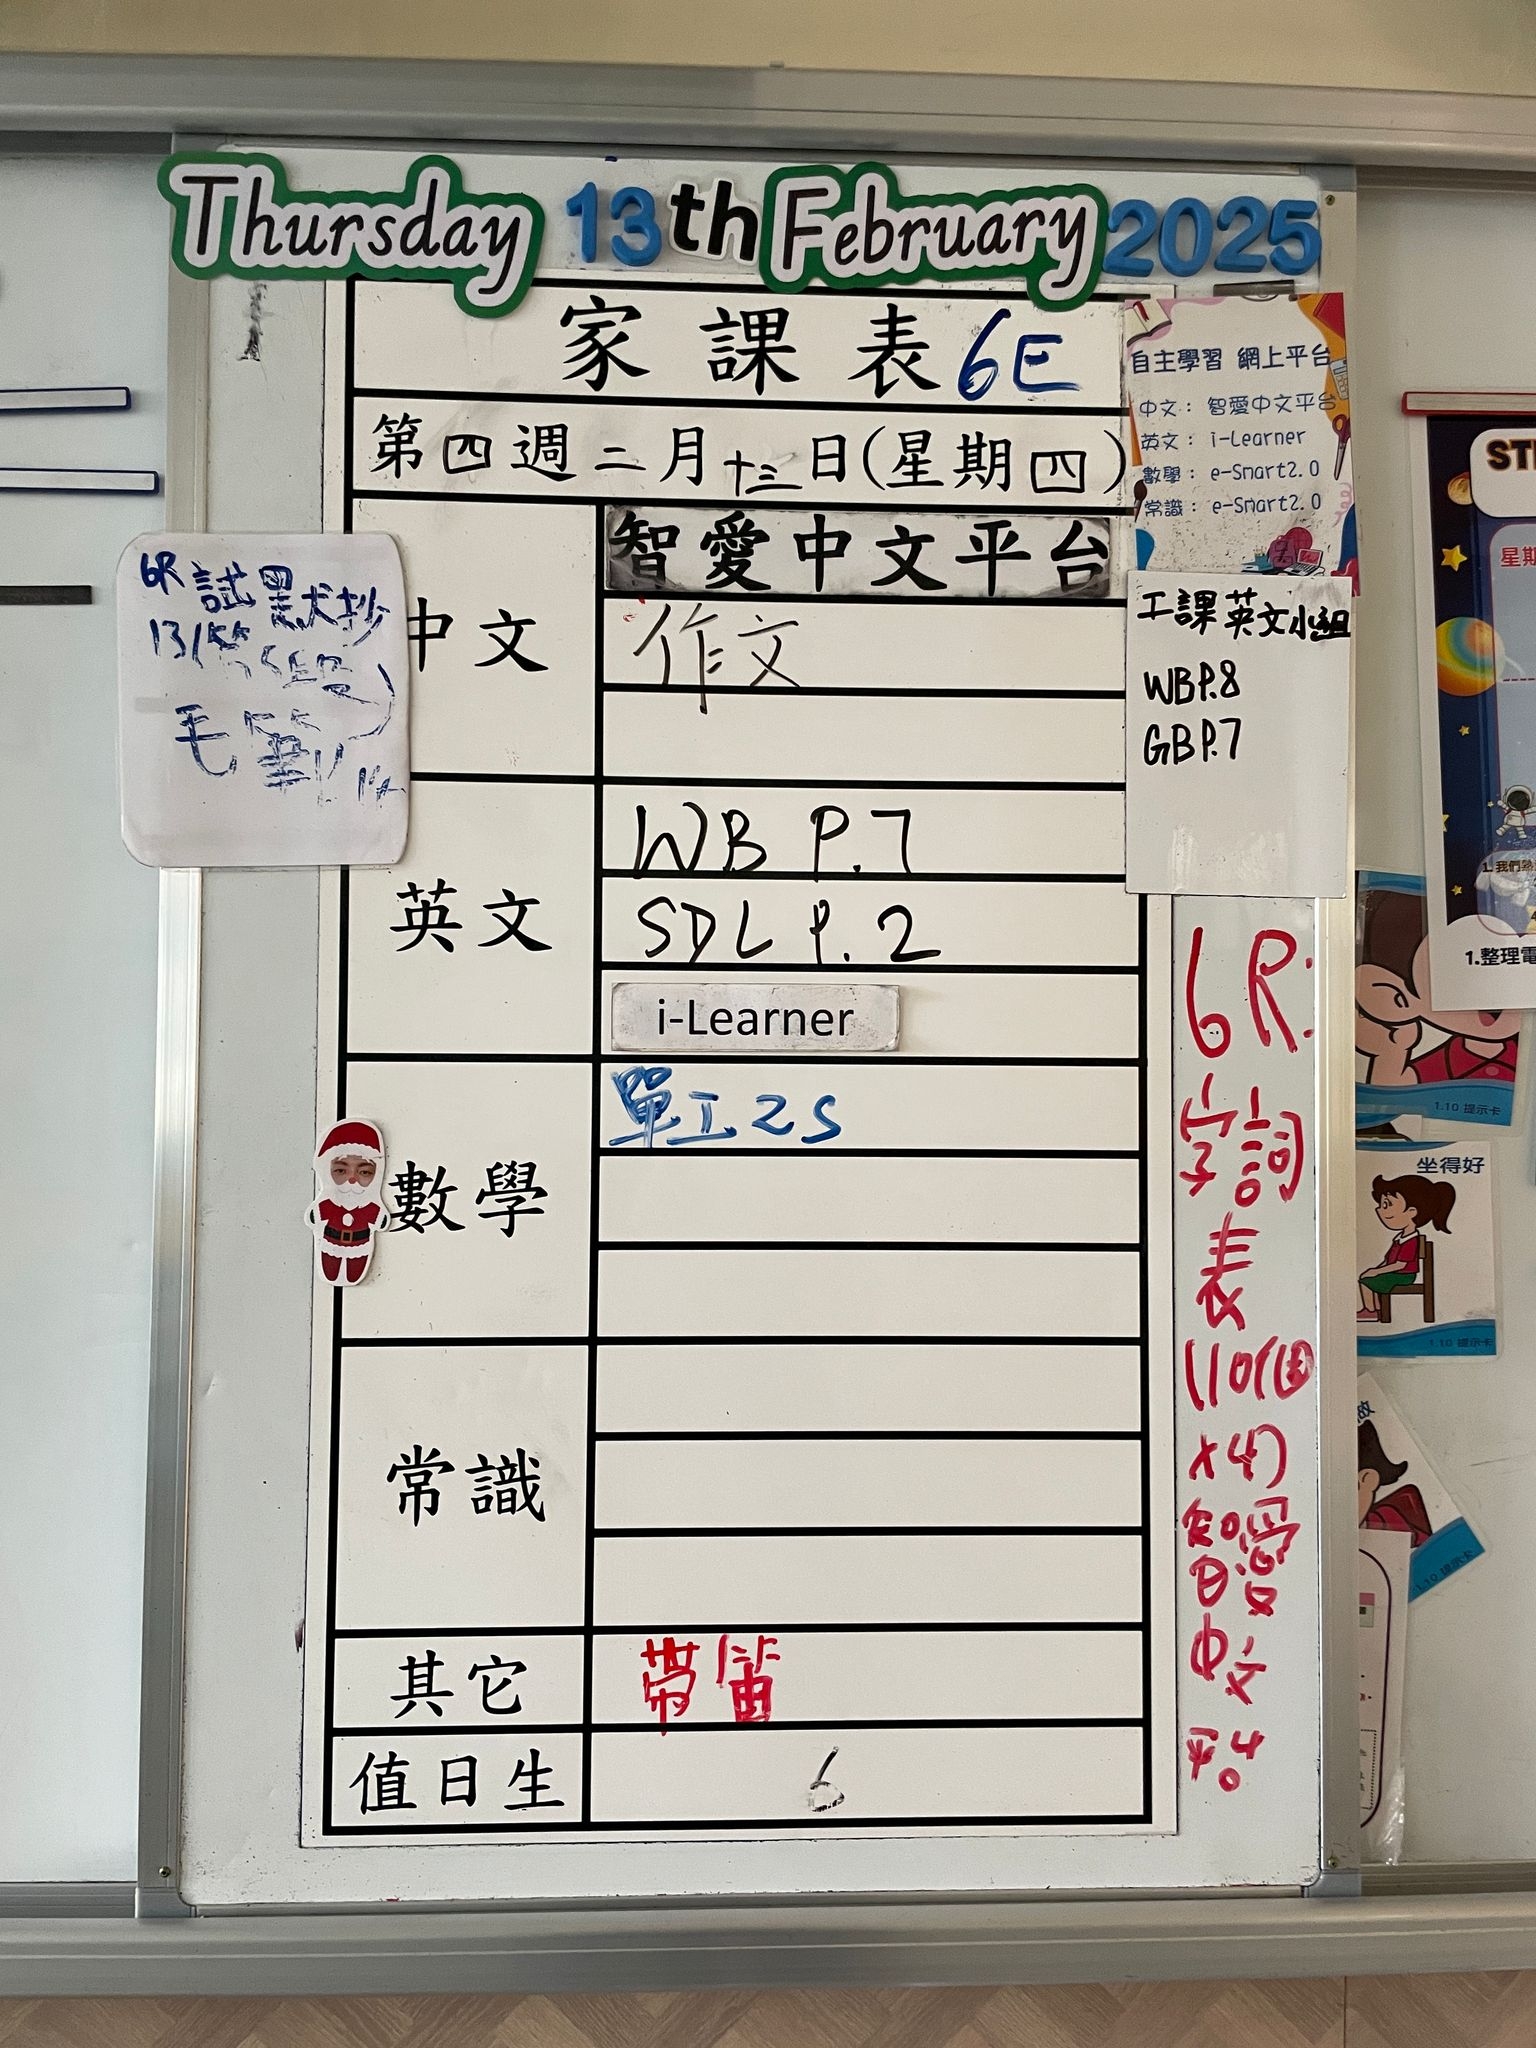 Thursday 13th February 2025
家課表 6E
第四週二月十三日(星期四)
中文
智愛中文平台
作文
英文
WB P.7
SDL P.2
i-Learner
數學
單工25
常識
其它
帶笛
值日生
6
6R 試默抄
13/
毛筆
自主學習 網上平台
中文： 智愛中文平台
英文： i-Learner
數學： e-Smart2.0
常識： e-Smart2.0
工課英文小組
WB P.8
GB P.7
6R:
字詞
表
(10個
x4)
智愛
中文
平台
星期
1.整理電
1.10 提示卡
坐得好
1.10 提示卡
1.10 提示卡